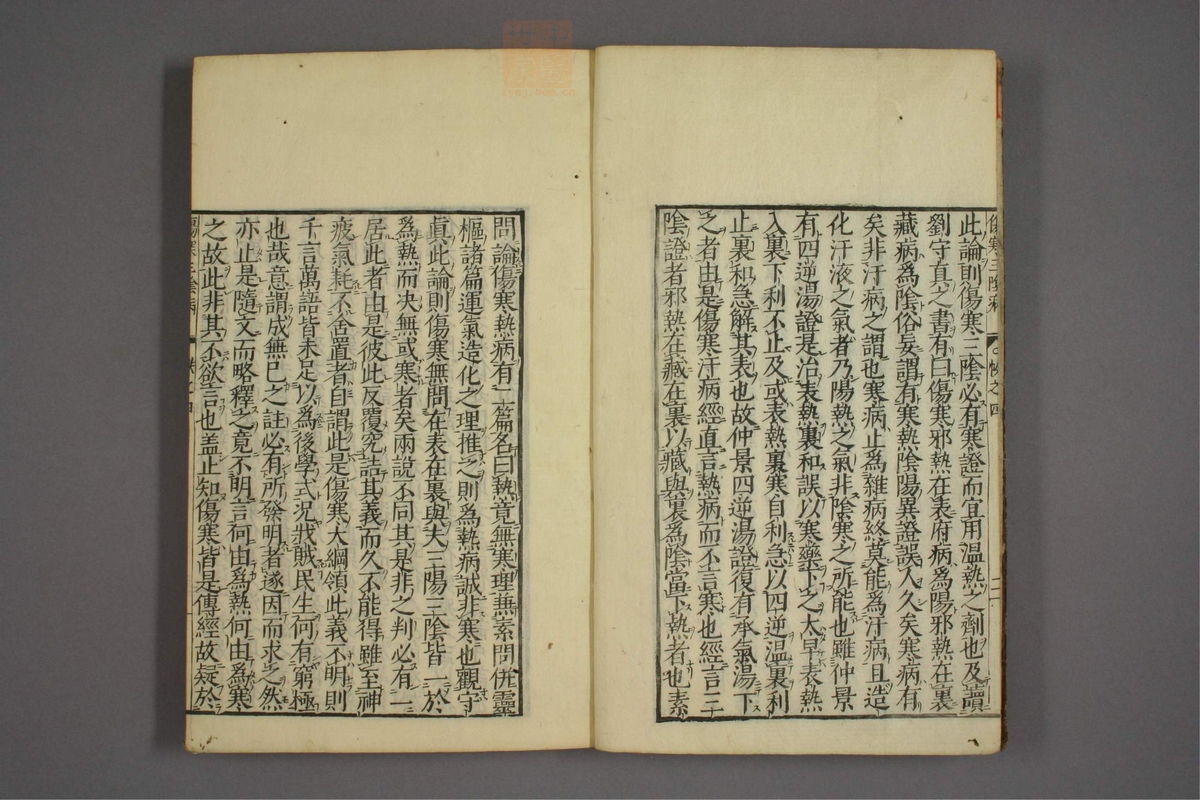 此論則傷寒三陰必有寒證而宜用溫熱之劑也及讀
劉守真之書有曰傷寒邪熱在表府病爲陽邪熱在裏
藏病爲陰俗妄謂有寒熱陰陽異證誤人久矣寒病有
矣非汗病之謂也寒病止爲雜病終莫能爲汗病且造
化汗液之氣者乃陽熱之氣非陰寒之所能也雖仲景
有四逆湯證是治表熱裏和誤以寒藥下之太早表熱
入裏下利不止及或表熱裏寒自利急以四逆溫裏利
止裏和急解其表也故仲景四逆湯證復有承氣湯下
之者由是傷寒汗病經直言熱病而不言寒也經言三
陰證者邪熱在藏在裏以藏與裏爲陰當下熱者也素
問論傷寒熱病有二篇名曰熱竟無寒理兼素問併靈
樞諸篇運氣造化之理推之則爲熱病誠非寒也觀守
眞此論則傷寒無問在表在裏與夫三陽三陰皆一於
爲熱而决無或寒者矣兩說不同其是非之判必有一
居此者由是彼此反覆究詰其義而久不能得雖至神
疲氣耗不舍置者自謂此是傷寒大綱領此義不明則
千言萬語皆未足以爲後學式况戕賊民生何有窮極
也哉意謂成無己之註必有所發明者遂因而求之然
亦止是隨文而略釋之竟不明言何由爲熱何由爲寒
之故此非其不欲言也盖止知傷寒皆是傳經故疑於